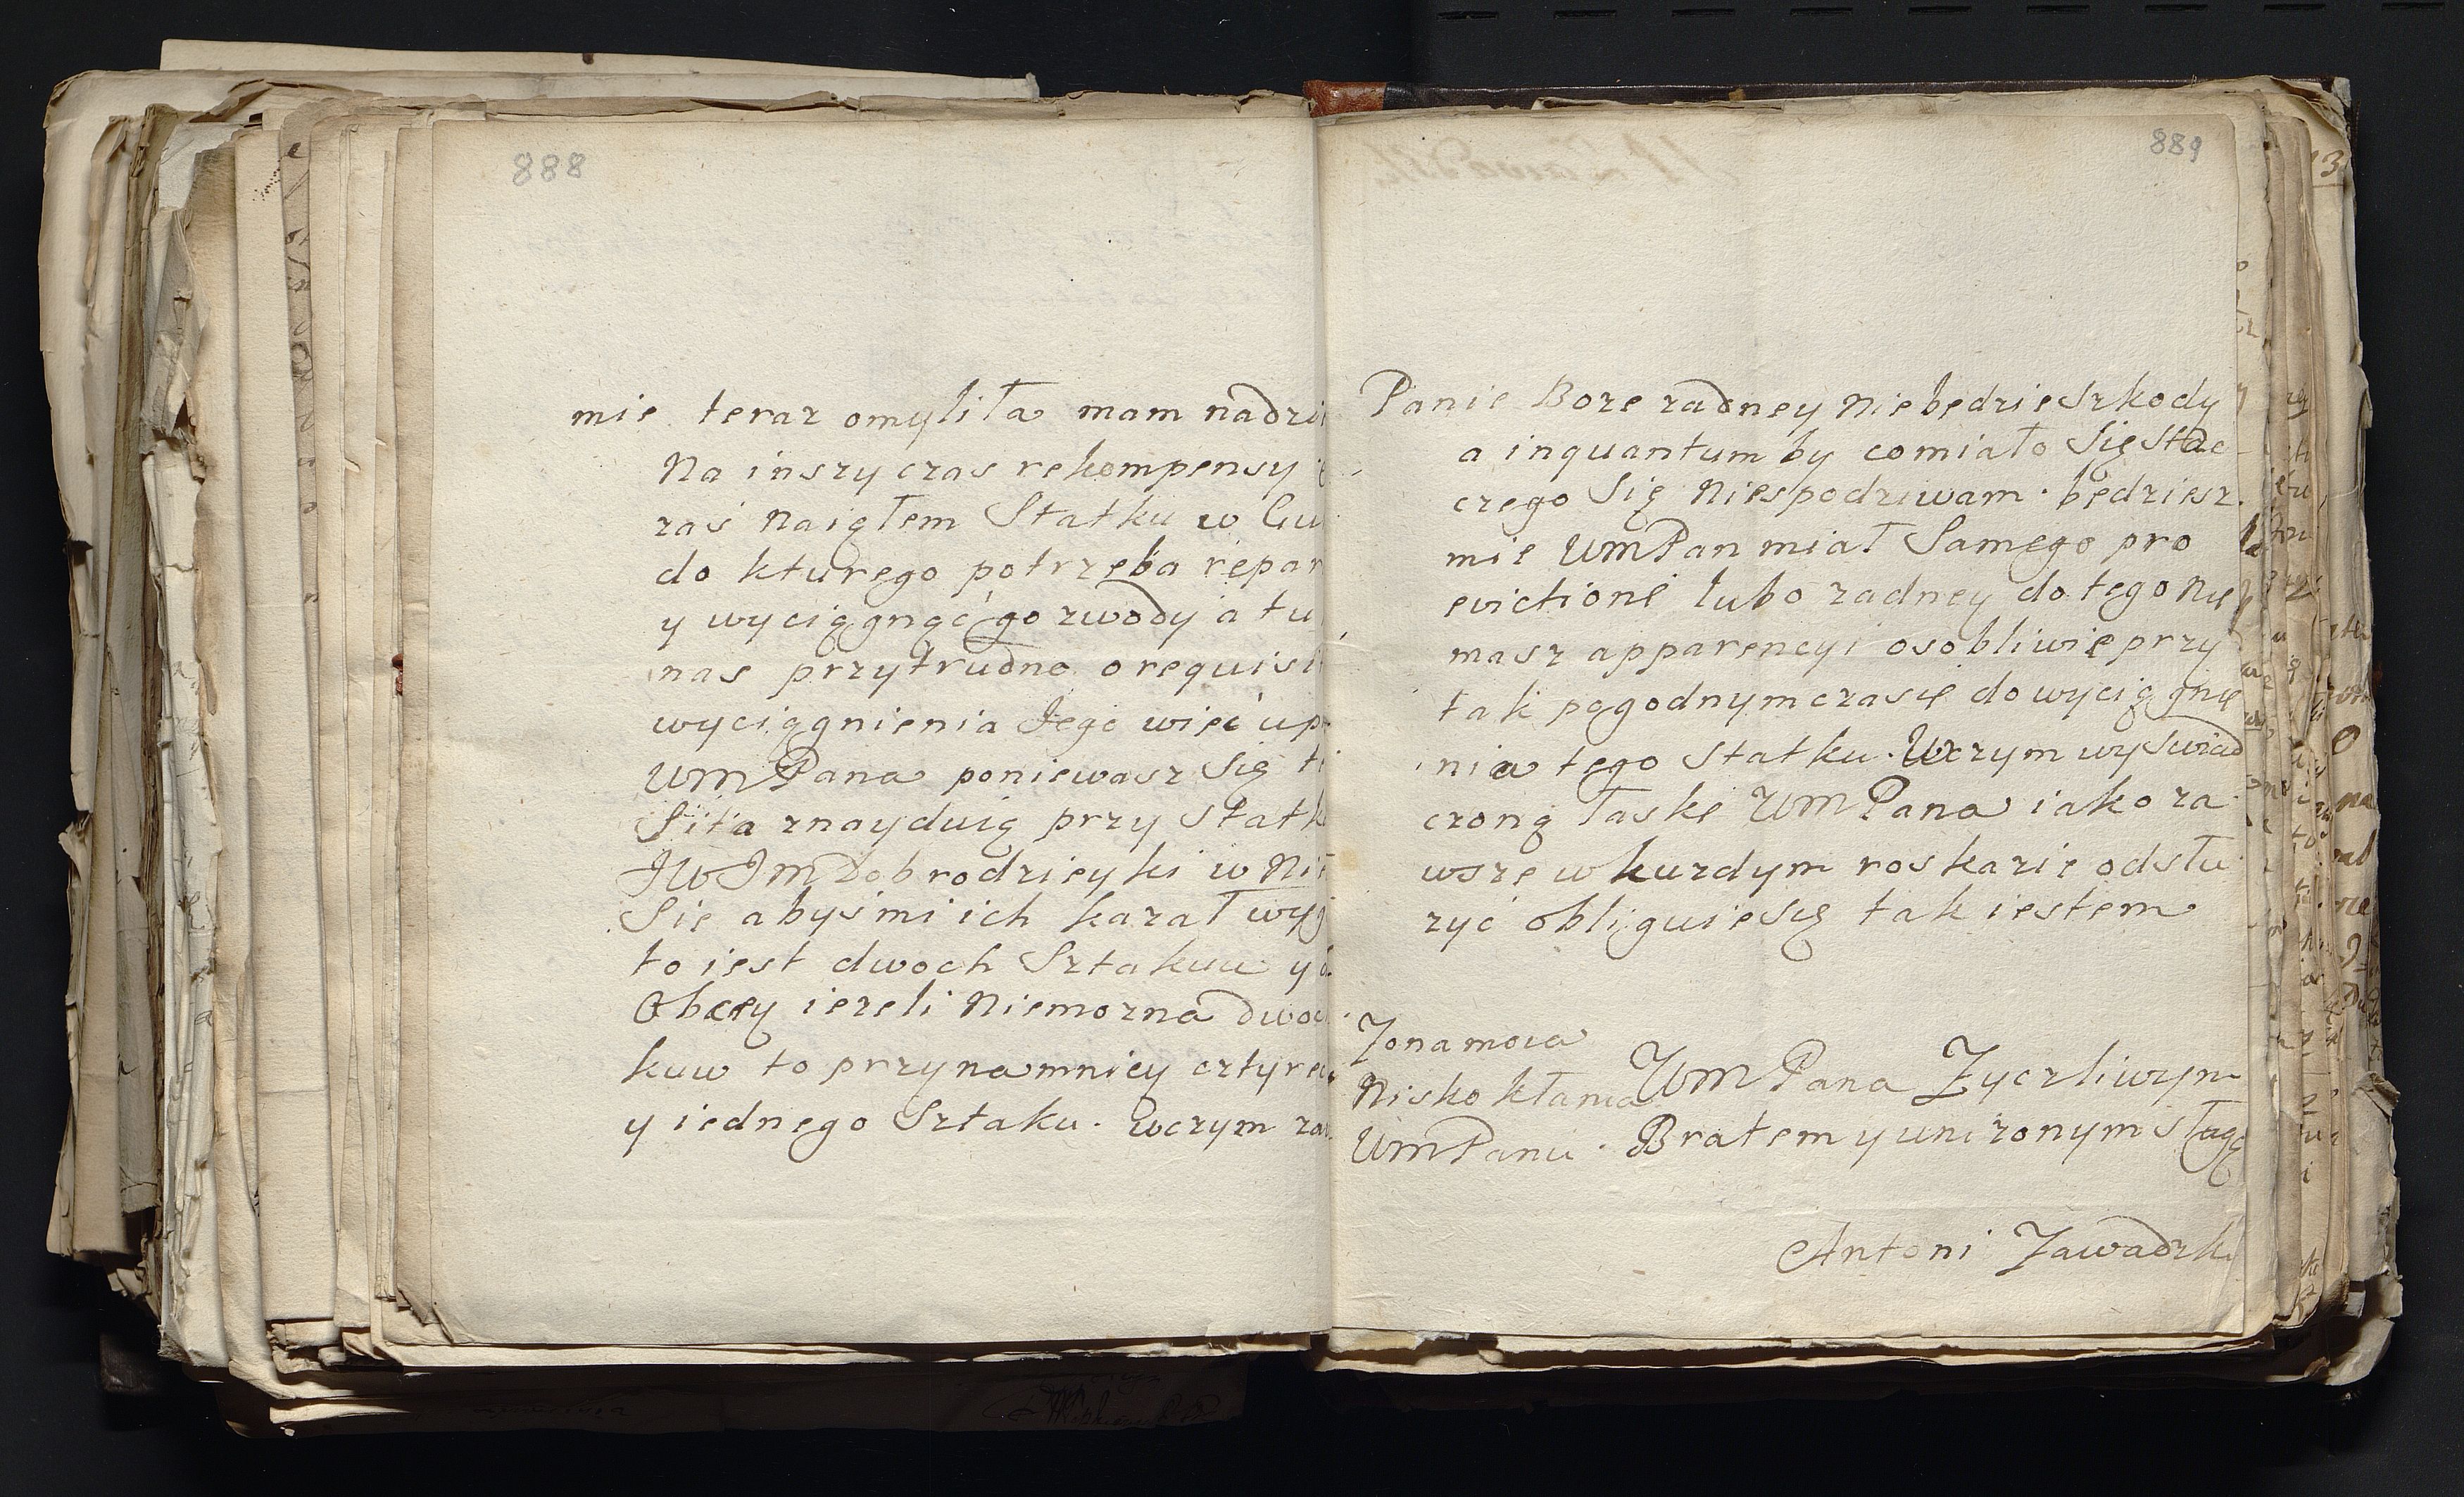 888
mie teraz omyliła mam nadzi
Na inszy czas rekompensy
zaś Naiąłem Statku w Gu
do kturego potrzeba repar
y wyciągnąć go zwody a tu
nas przytrudno o requisi
wyciągnienia Jego więc up
UMPana poniewasz Się
Siła znayduią przy Statk
JWJMDobrodzieyki w Ni
Sie abyś mi ich kazał wyg
to iest dwoch Sztakuw y
Obcey iezeli Niemozna dwo
kuw to przynamniey cztyre
y iednego Sztaku. Wczym za
889
Panie Boze zadney Niebędzie Szkody
a inquantum by comiało Się Stac
czego Się Niespodziwam. będziesz
mie UMPan miał Samego pro
evictione lubo zadney do tego Nie
masz apparencyi osobliwie przy
tak pogodnym czasie do wyciągnie
nia tego Statku. Wczym wyswiad
czoną łaske UMPana iako za
wsze w kuzdym roskazie odsłu
zyć obliguie Się tak iestem
Zona moia
Nisko kłania
UMPanu.
UMPana Zyczliwym
Bratem y unizonym sługą
Antoni Zawadzki